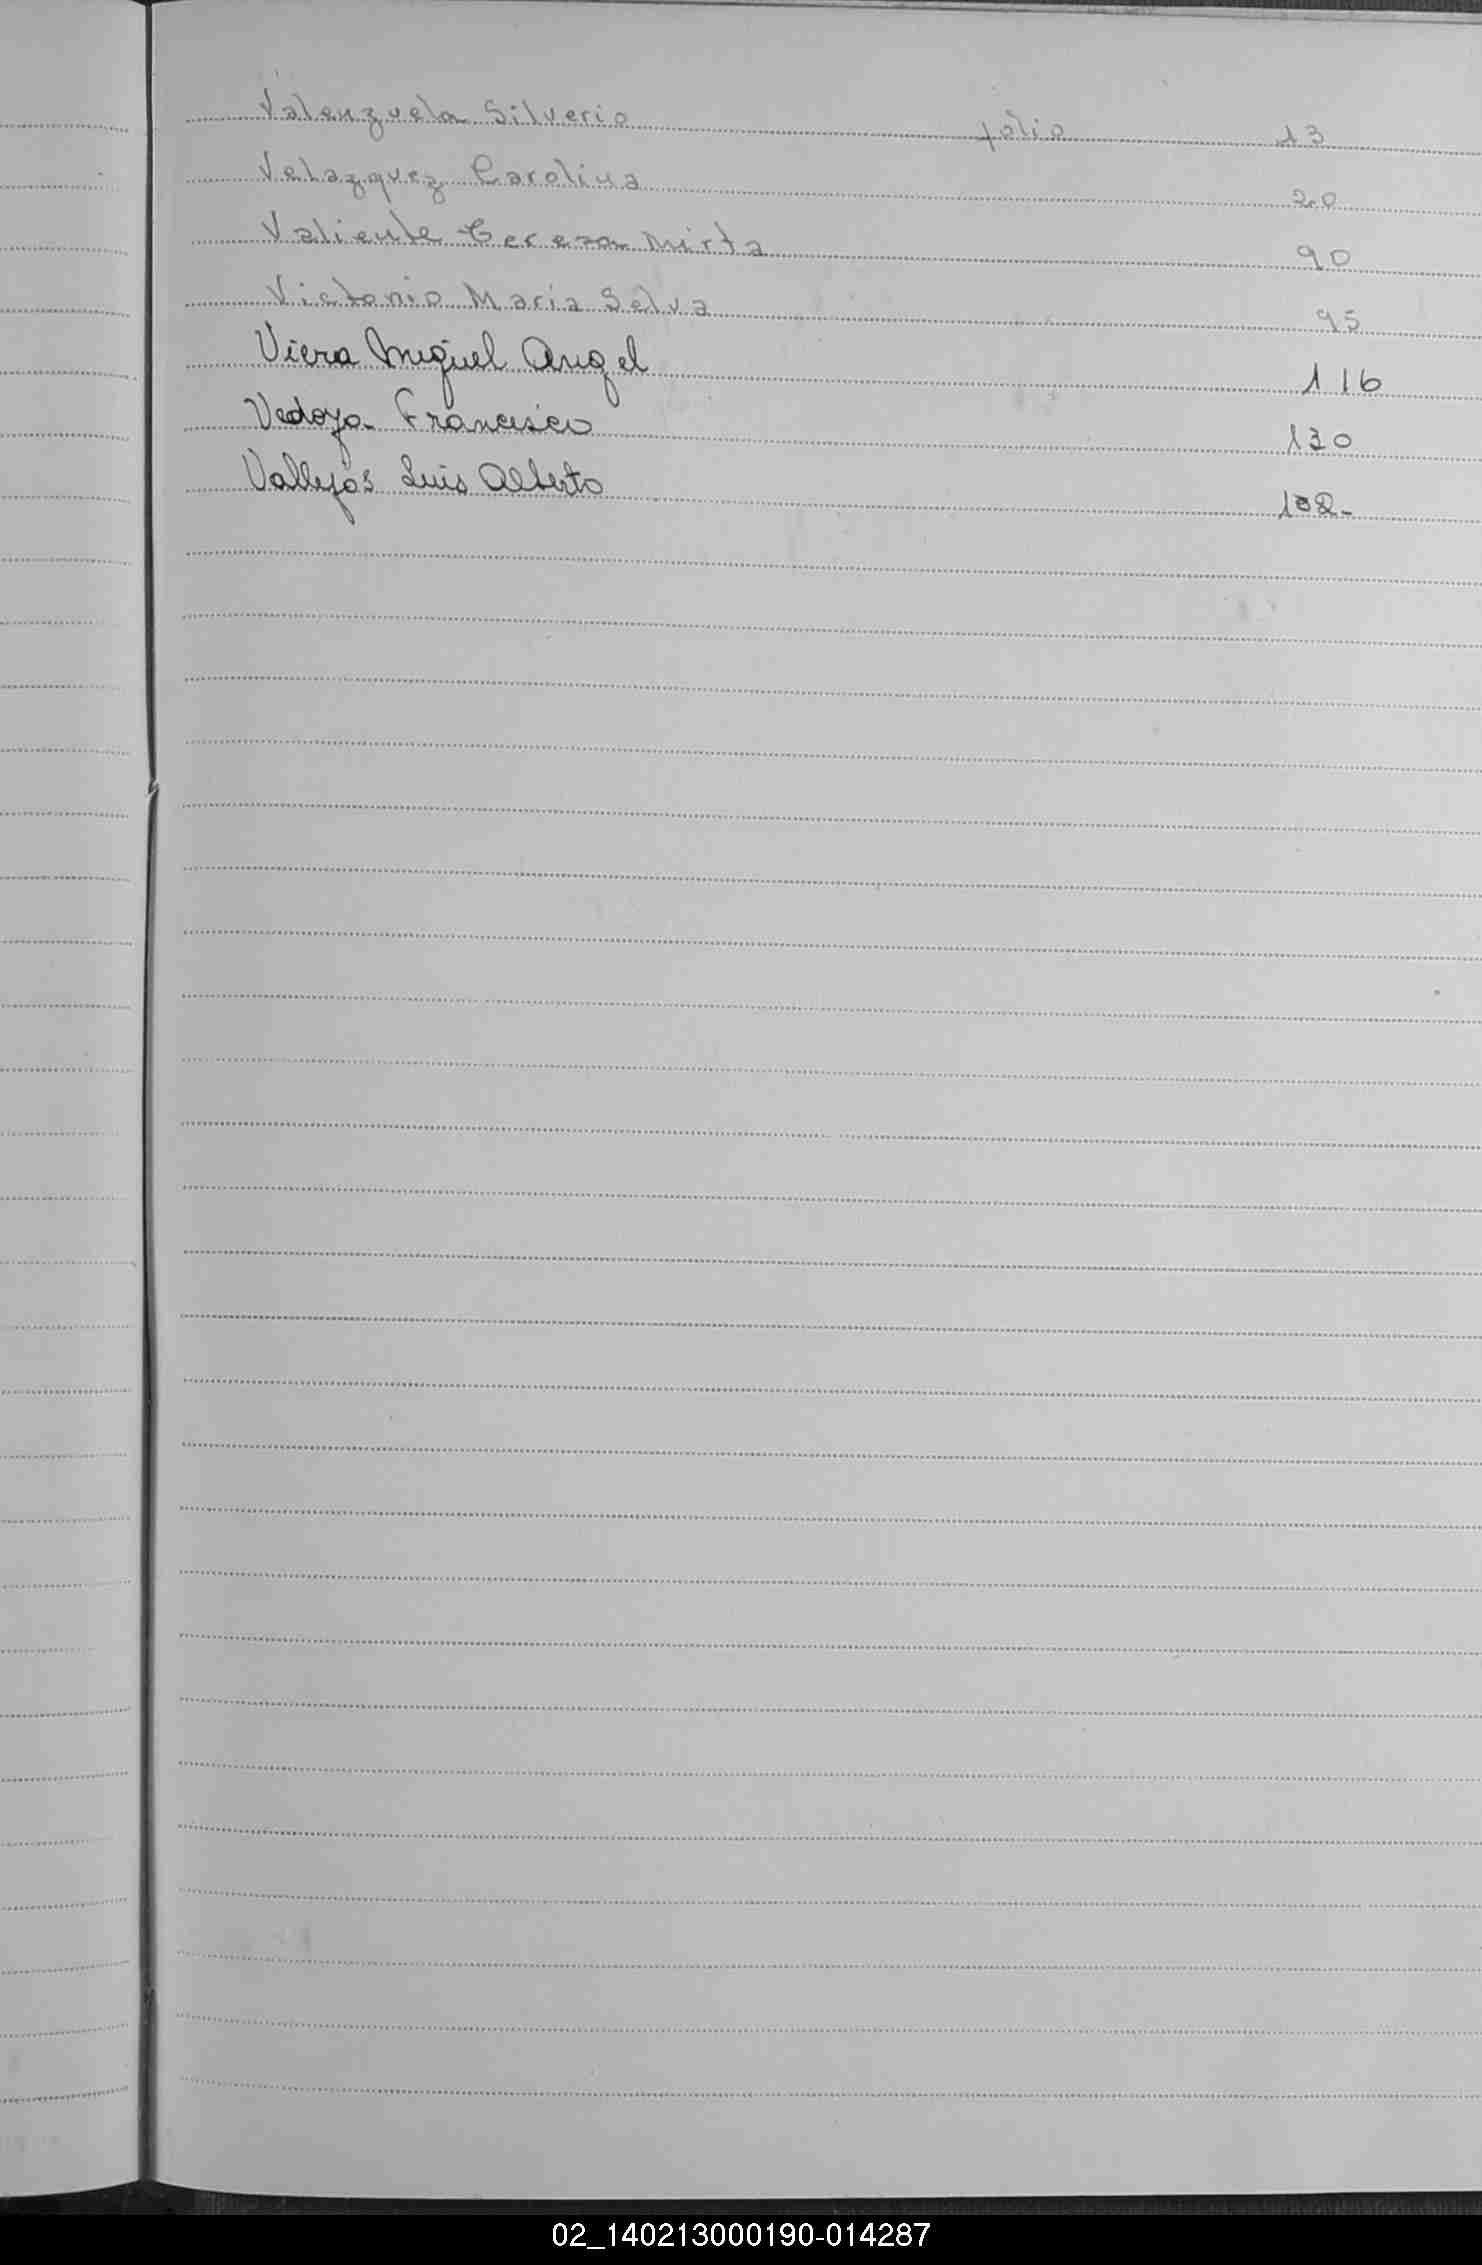 Valenzuela Silverio folio 13
Velazquez Carolina 20
Valiente Tereza Mirta 90
Victorio Maria Selva 95
Viera Miguel Angel 116
Vedoya Francisco 130
Vallejos Luis Alberto
02_140213000190-014287